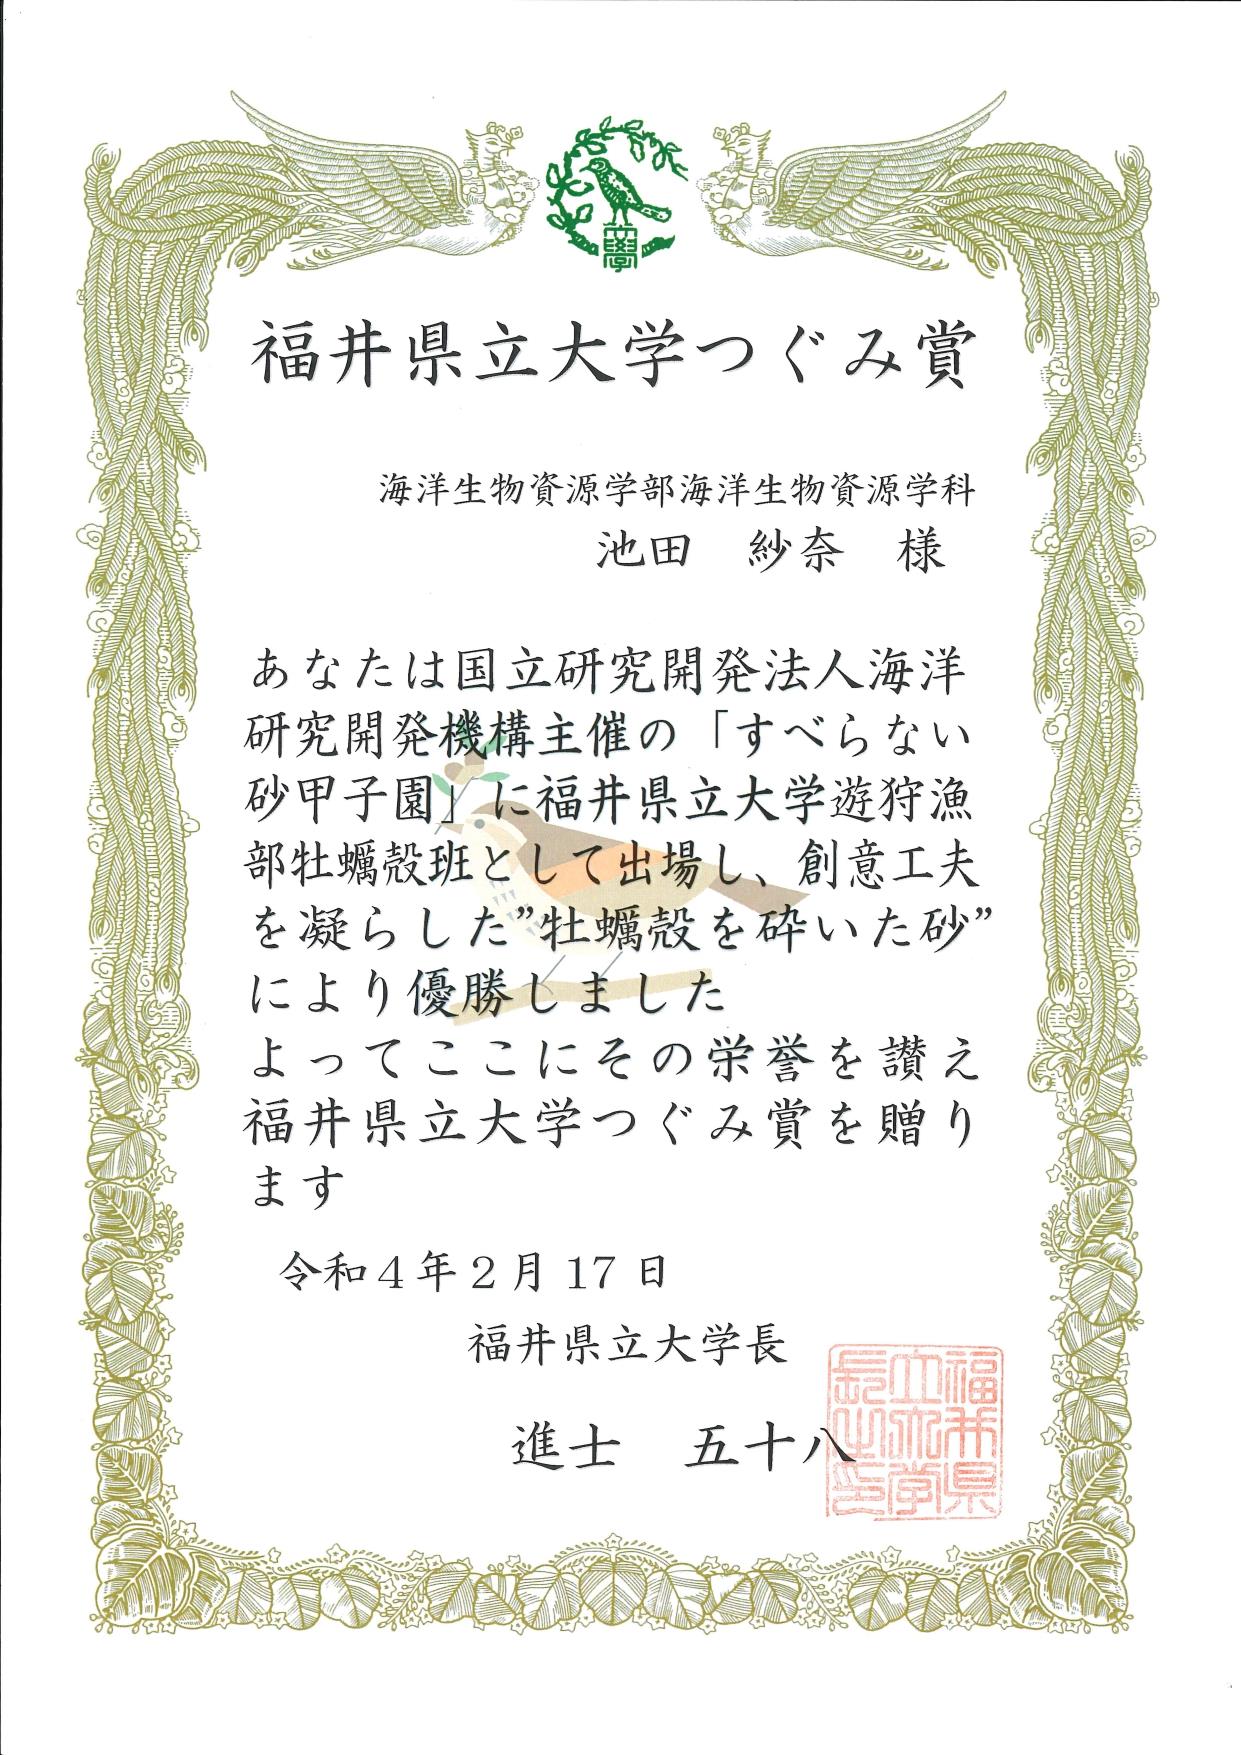 學
福井県立大学つぐみ賞
海洋生物資源学部海洋生物資源学科
池田　紗奈　様
あなたは国立研究開発法人海洋
研究開発機構主催の「すべらない
砂甲子園」に福井県立大学遊狩漁
部牡蠣殻班として出場し、創意工夫
を凝らした”牡蠣殻を砕いた砂”
により優勝しました
よってここにその栄誉を讃え
福井県立大学つぐみ賞を贈り
ます
令和４年２月 17 日
福井県立大学長
進士　五十八
福井県
立大学
長之印